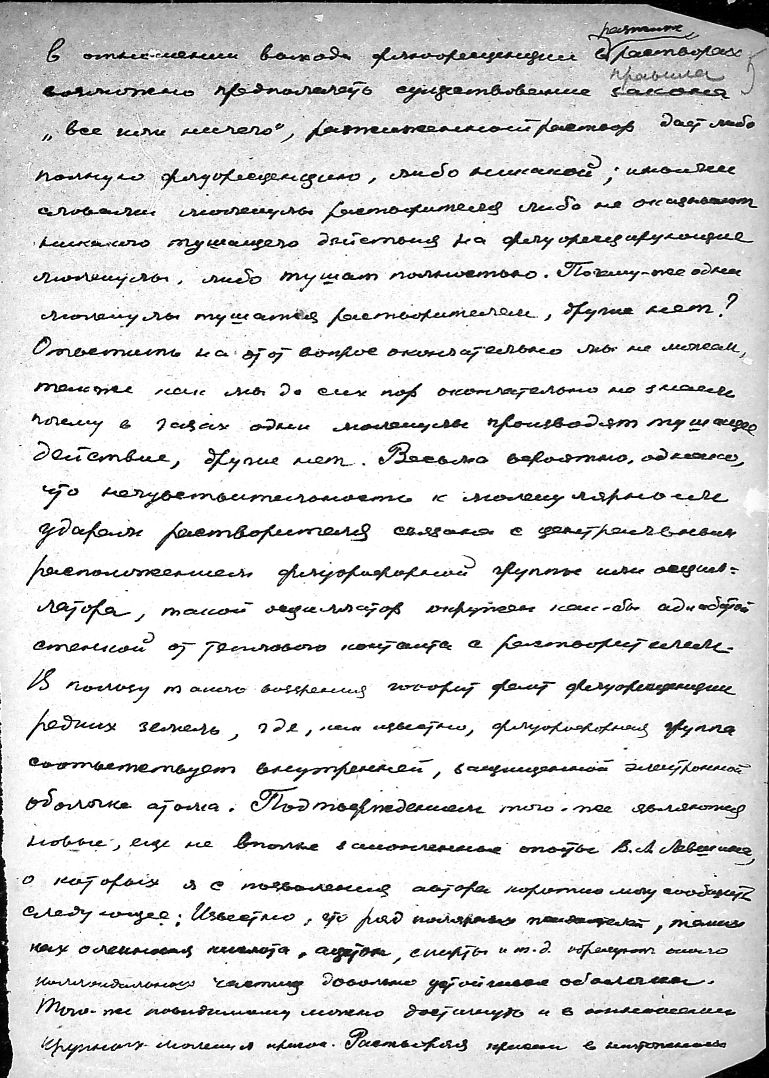 разных
в отношении выхода флюоресценции в растворах
правила
возможно предполагать существование закона
„все или ничего", разжиженный раствор дает либо
полную флуоресценцию, либо никакой; иными
словами молекулы растворителя либо не оказывают
никакого тушащего действия на флуоресцирующие
молекулы, либо тушат полностью. Почему-же одни
молекулы тушатся растворителем, другие нет?
Ответить на этот вопрос окончательно мы не можем,
также как мы до сих пор окончательно не знаем
почему в газах одни молекулы производят тушащее
действие, другие нет. Весьма вероятно, однако,
что нечувствительность к молекулярным
ударам растворителя связана с центральным
расположением флуорофорной группы или осцил-
лятора, такой осциллятор окружен как-бы адиабатой
стенкой от теплового контакта с растворителем.
В пользу такого воззрения говорит факт флуоресценции
редких земель, где, как известно, флуорофорная группа
соответствует внутренней, защищенной электронной
оболочке атома. Подтверждением того-же являются
новые, еще не вполне законченные опыты В.Л. Левшина,
о которых я с позволения автора коротко могу сообщить
следующее: Известно, что ряд полярных, таких
как олеиновая кислота, ацетон, спирты и т.д. образуют около
коллоидальных частиц довольно устойчивые оболочки.
Того-же повидимому можно достигнуть и в отношении
крупных молекул красок. Растворяя краски в